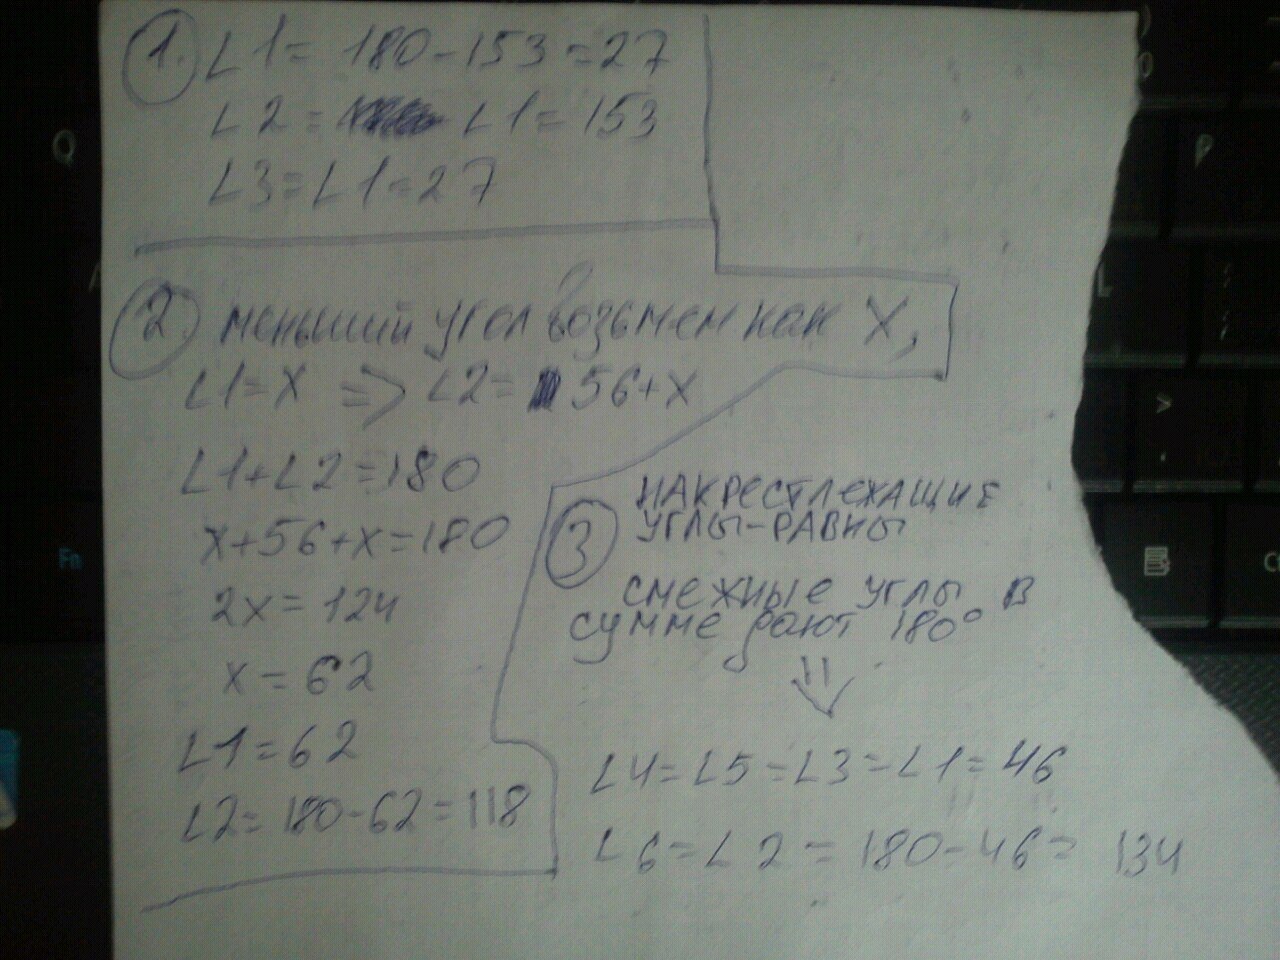 1. ∠1= 180-153=27
∠2= ∠1=153
∠3=∠1=27
2. меньший угол возьмем как X,
∠1=X => ∠2= 56+X
∠1+∠2=180
x+56+x=180
2x=124
x=62
∠1=62
∠2=180-62=118
3 НАКРЕСТЛЕЖАЩИЕ
УГЛЫ-РАВНЫ
СМЕЖНЫЕ УГЛЫ В
СУММЕ дают 180°
∠4=∠5=∠3=∠1=46
∠6=∠2=180-46=134
Q
P
L
>
.
Fn